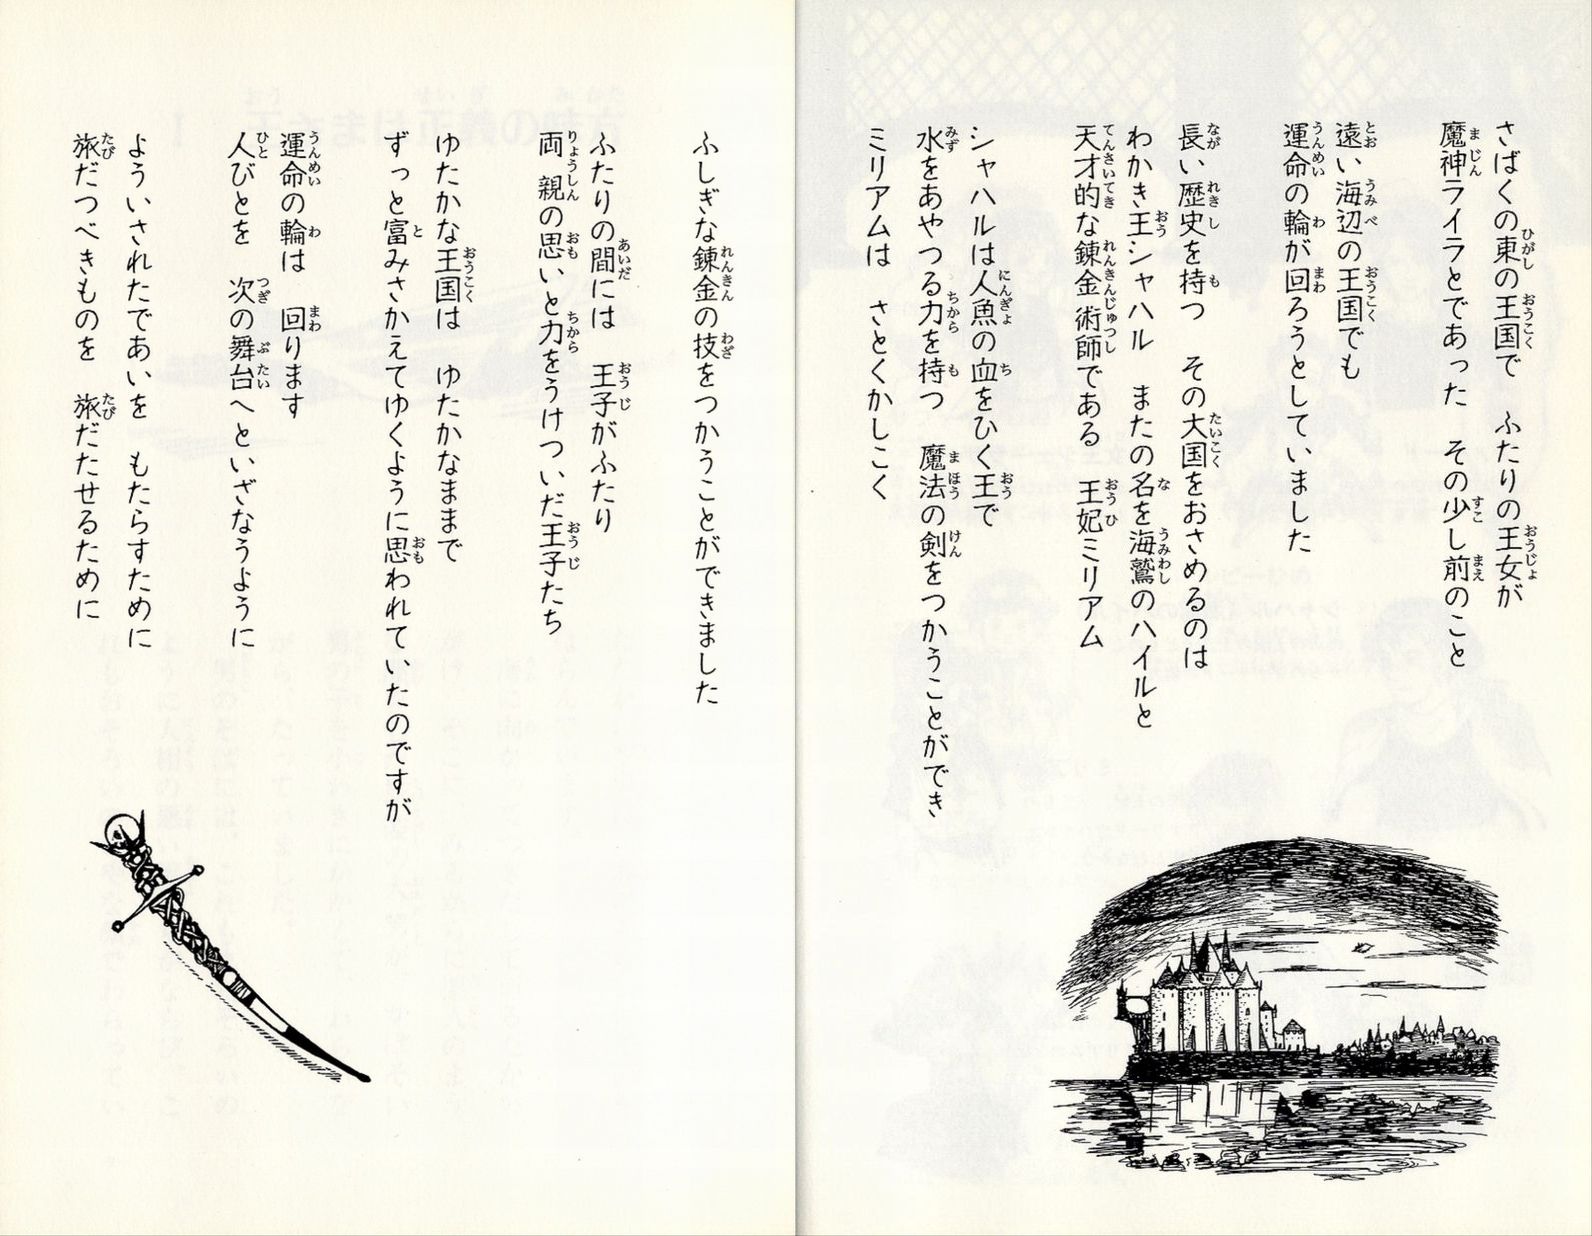 さばくの東の王国で　ふたりの王女が
魔神ライラとであった　その少し前のこと
遠い海辺の王国でも
運命の輪が回ろうとしていました
長い歴史を持つ　その大国をおさめるのは
わかき王シャハル　またの名を海鷲のハイルと
天才的な錬金術師である　王妃ミリアム
シャハルは人魚の血をひく王で
水をあやつる力を持つ　魔法の剣をつかうことができ
ミリアムは　さとくかしこく
ふしぎな錬金の技をつかうことができました
ふたりの間には　王子がふたり
両親の思いと力をうけついだ王子たち
ゆたかな王国は　ゆたかなままで
ずっと富みさかえてゆくように思われていたのですが
運命の輪は　回ります
人びとを　次の舞台へといざなうように
よういされたであいを　もたらすために
旅だつべきものを　旅だたせるために